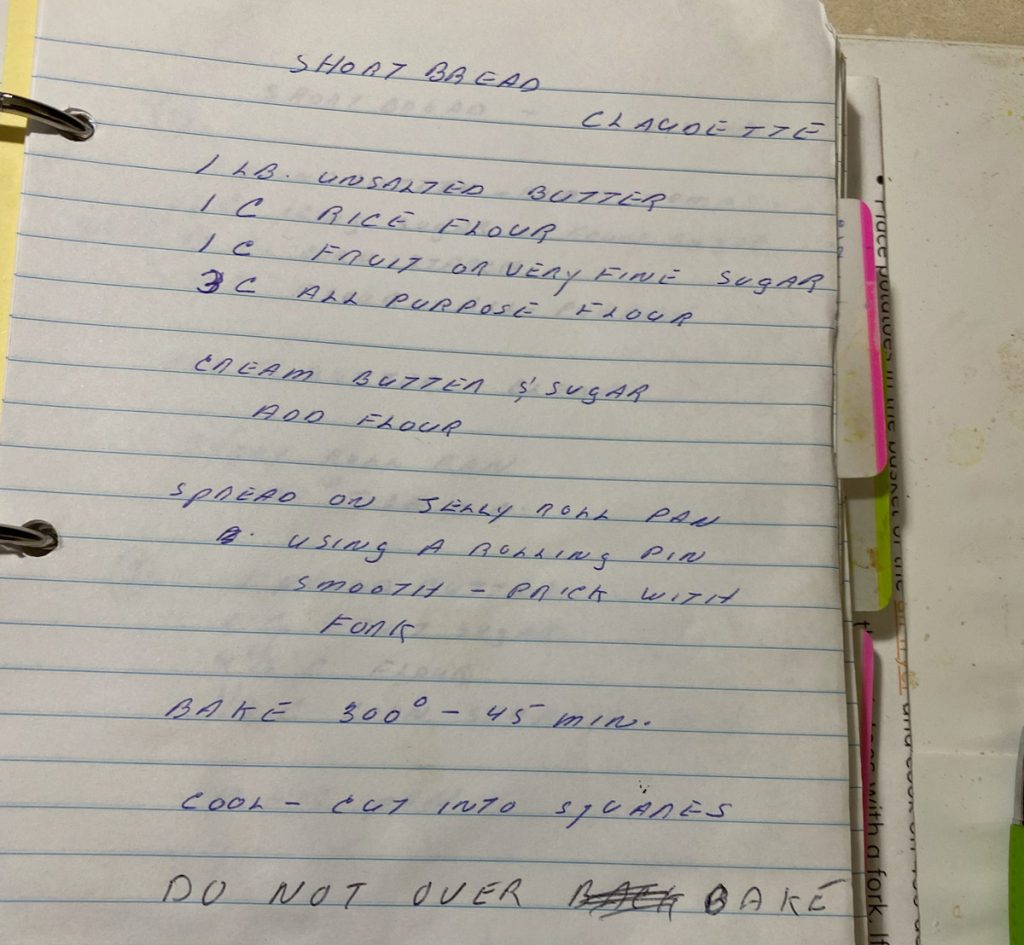 SHORT BREAD
CLAUDETTE
1 LB. UNSALTED BUTTER
1 C RICE FLOUR
1 C FRUIT OR VERY FINE SUGAR
3 C ALL PURPOSE FLOUR
CREAM BUTTER & SUGAR
ADD FLOUR
SPREAD ON JELLY ROLL PAN
USING A ROLLING PIN
SMOOTH - PRICK WITH
FORK
BAKE 300° - 45 MIN.
COOL - CUT INTO SQUARES
DO NOT OVER BAKE
• Place potatoes in the basket of the air fryer and cook on
with a fork. If